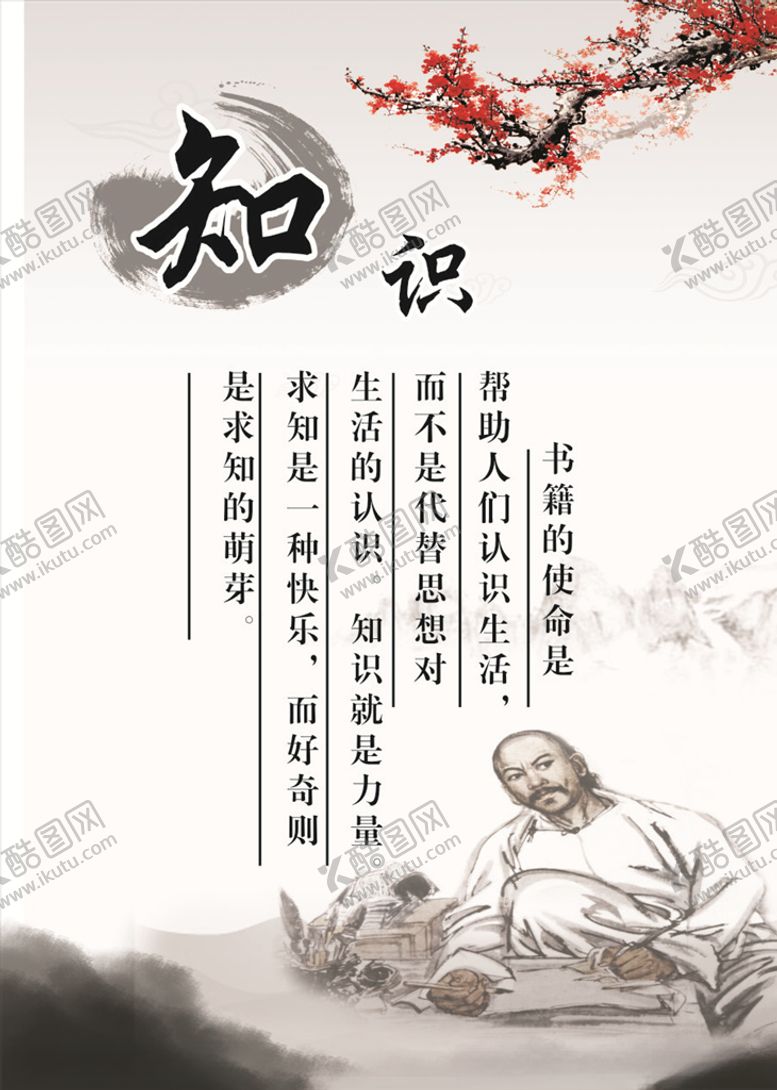 知识
书籍的使命是
帮助人们认识生活，
而不是代替思想对
生活的认识。知识就是力量。
求知是一种快乐，而好奇则
是求知的萌芽。
酷图网
www.ikutu.com